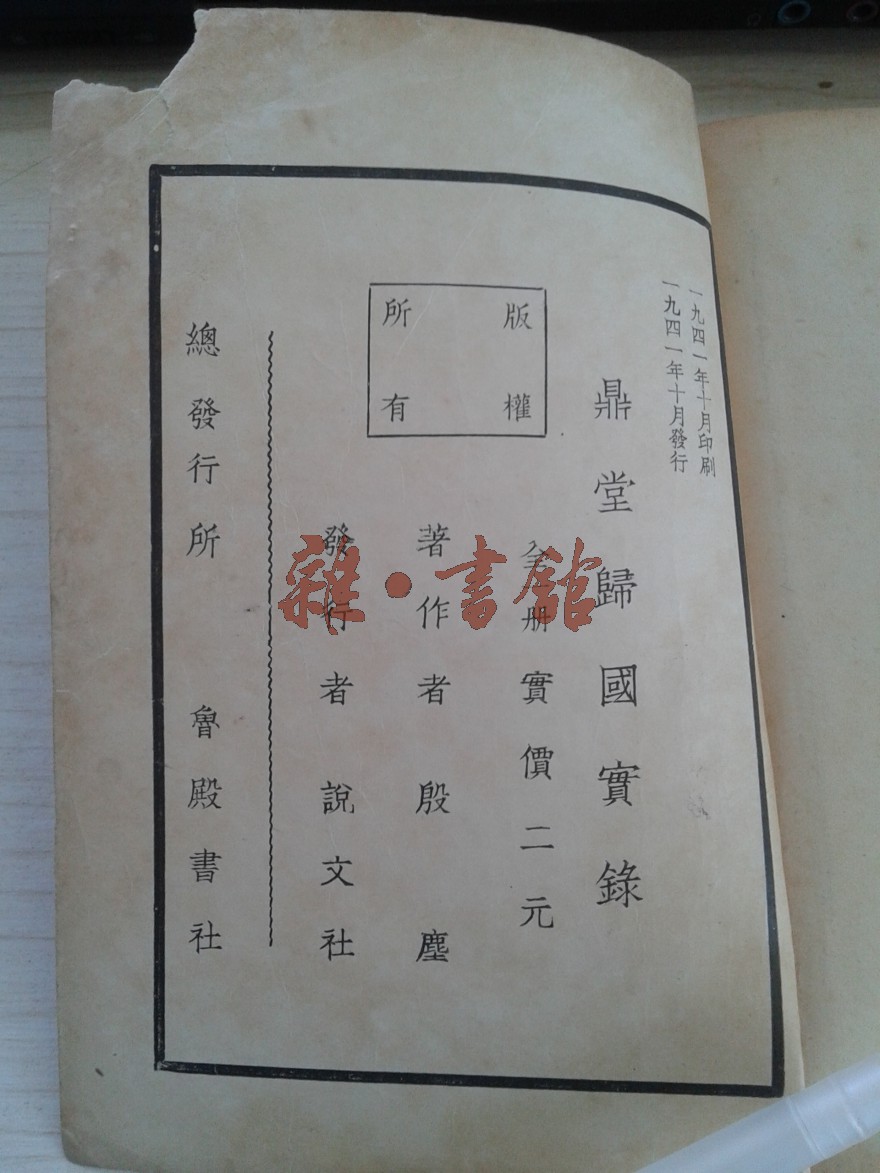 一九四一年十月印刷
一九四一年十月發行
鼎堂歸國實錄
全一册實價二元
版權所有
著作者殷塵
發行者說文社
總發行所 魯殿書社
雜·書館